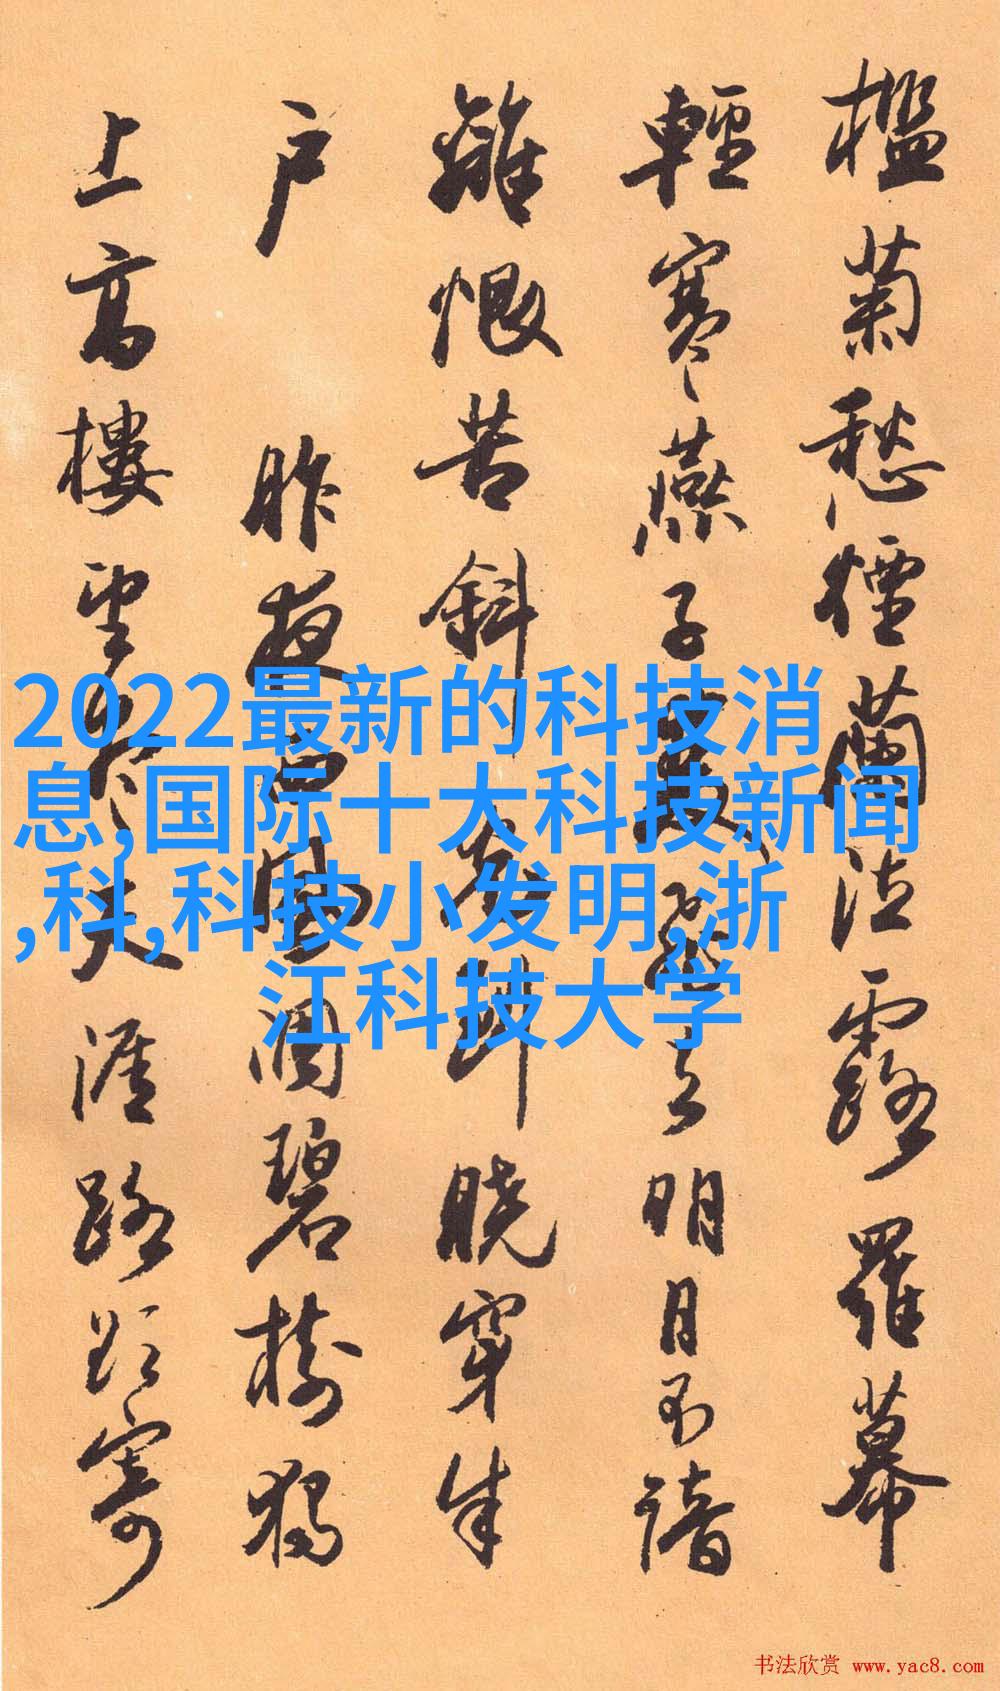 檻菊愁煙蘭泣露羅幕
輕寒燕子雙飛去明月不諳
離恨苦斜光到曉穿朱
户 昨夜西風凋碧樹獨
上高樓望盡天涯路欲寄
2022最新的科技消
息,国际十大科技新闻
,科,科技小发明,浙
江科技大学
书法欣赏 www.yac8.com